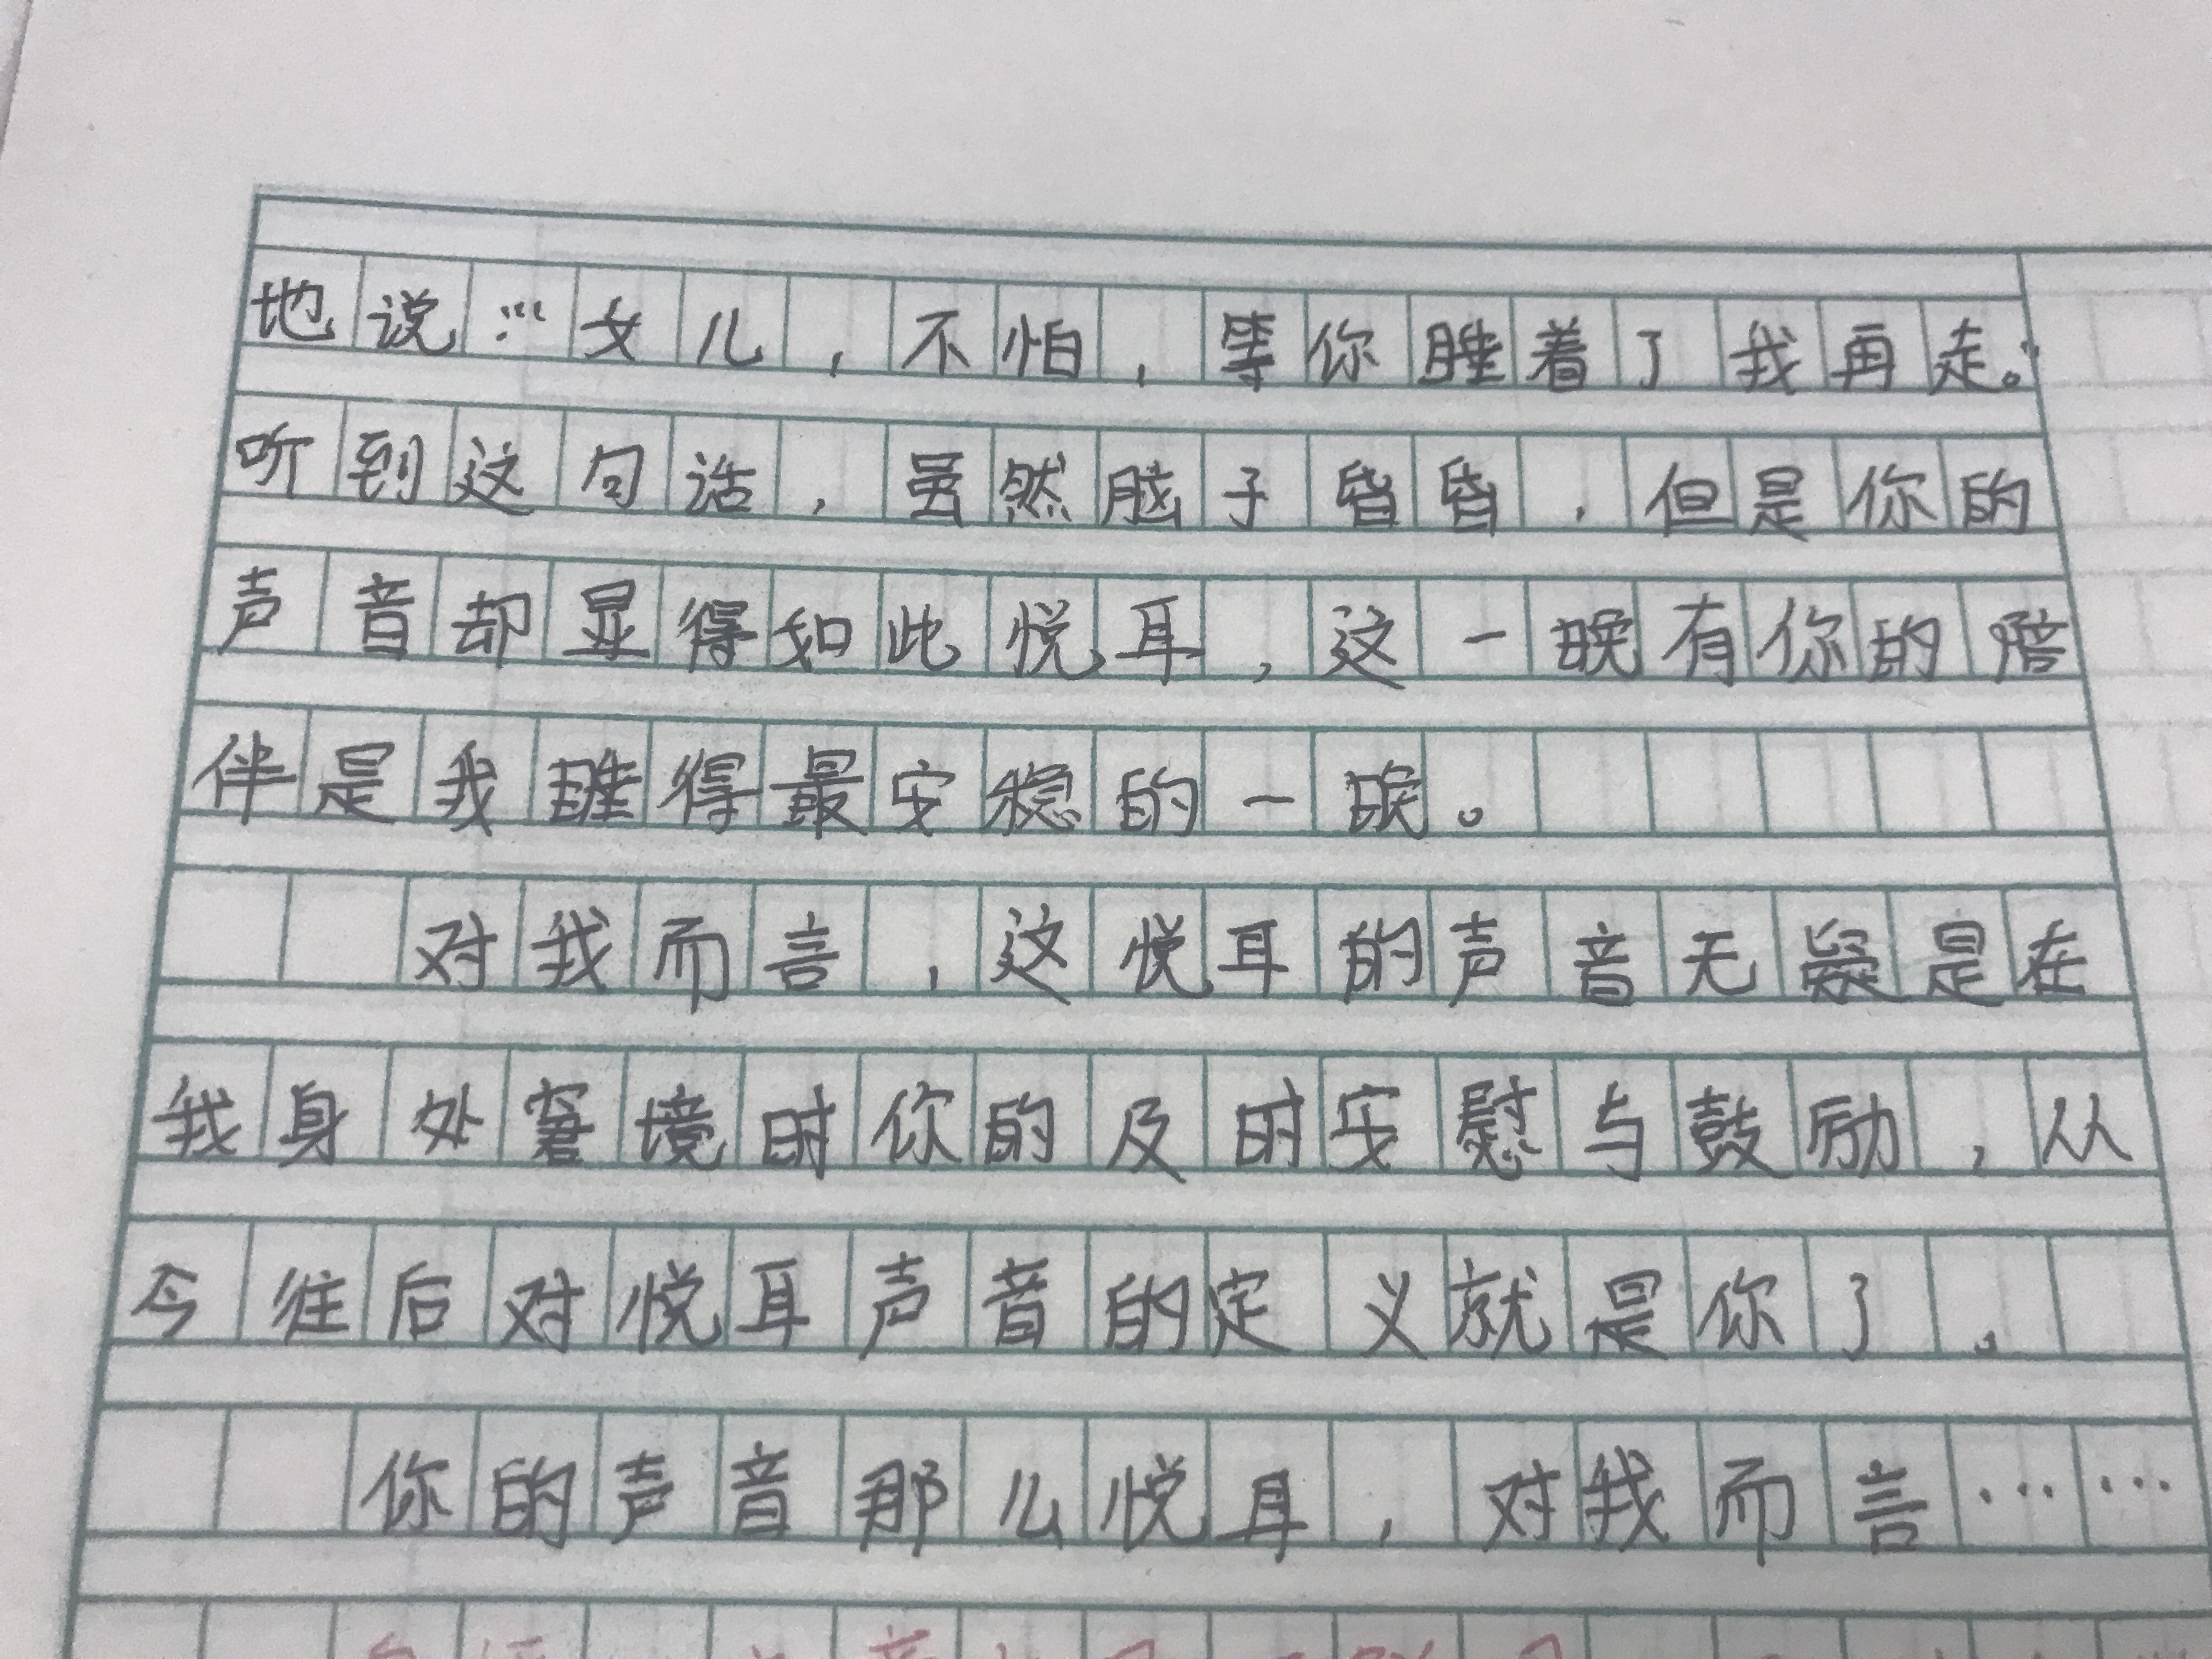 地说:“女儿，不怕，等你睡着了我再走。”
听到这句话，虽然脑子昏昏，但是你的
声音却显得如此悦耳，这一晚有你的陪
伴是我睡得最安稳的一晚。
对我而言，这悦耳的声音无疑是在
我身处窘境时你的及时安慰与鼓励，从
今往后对悦耳声音的定义就是你了。
你的声音那么悦耳，对我而言……